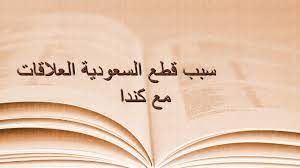 سبب قطع السعودية العلاقات
مع كندا